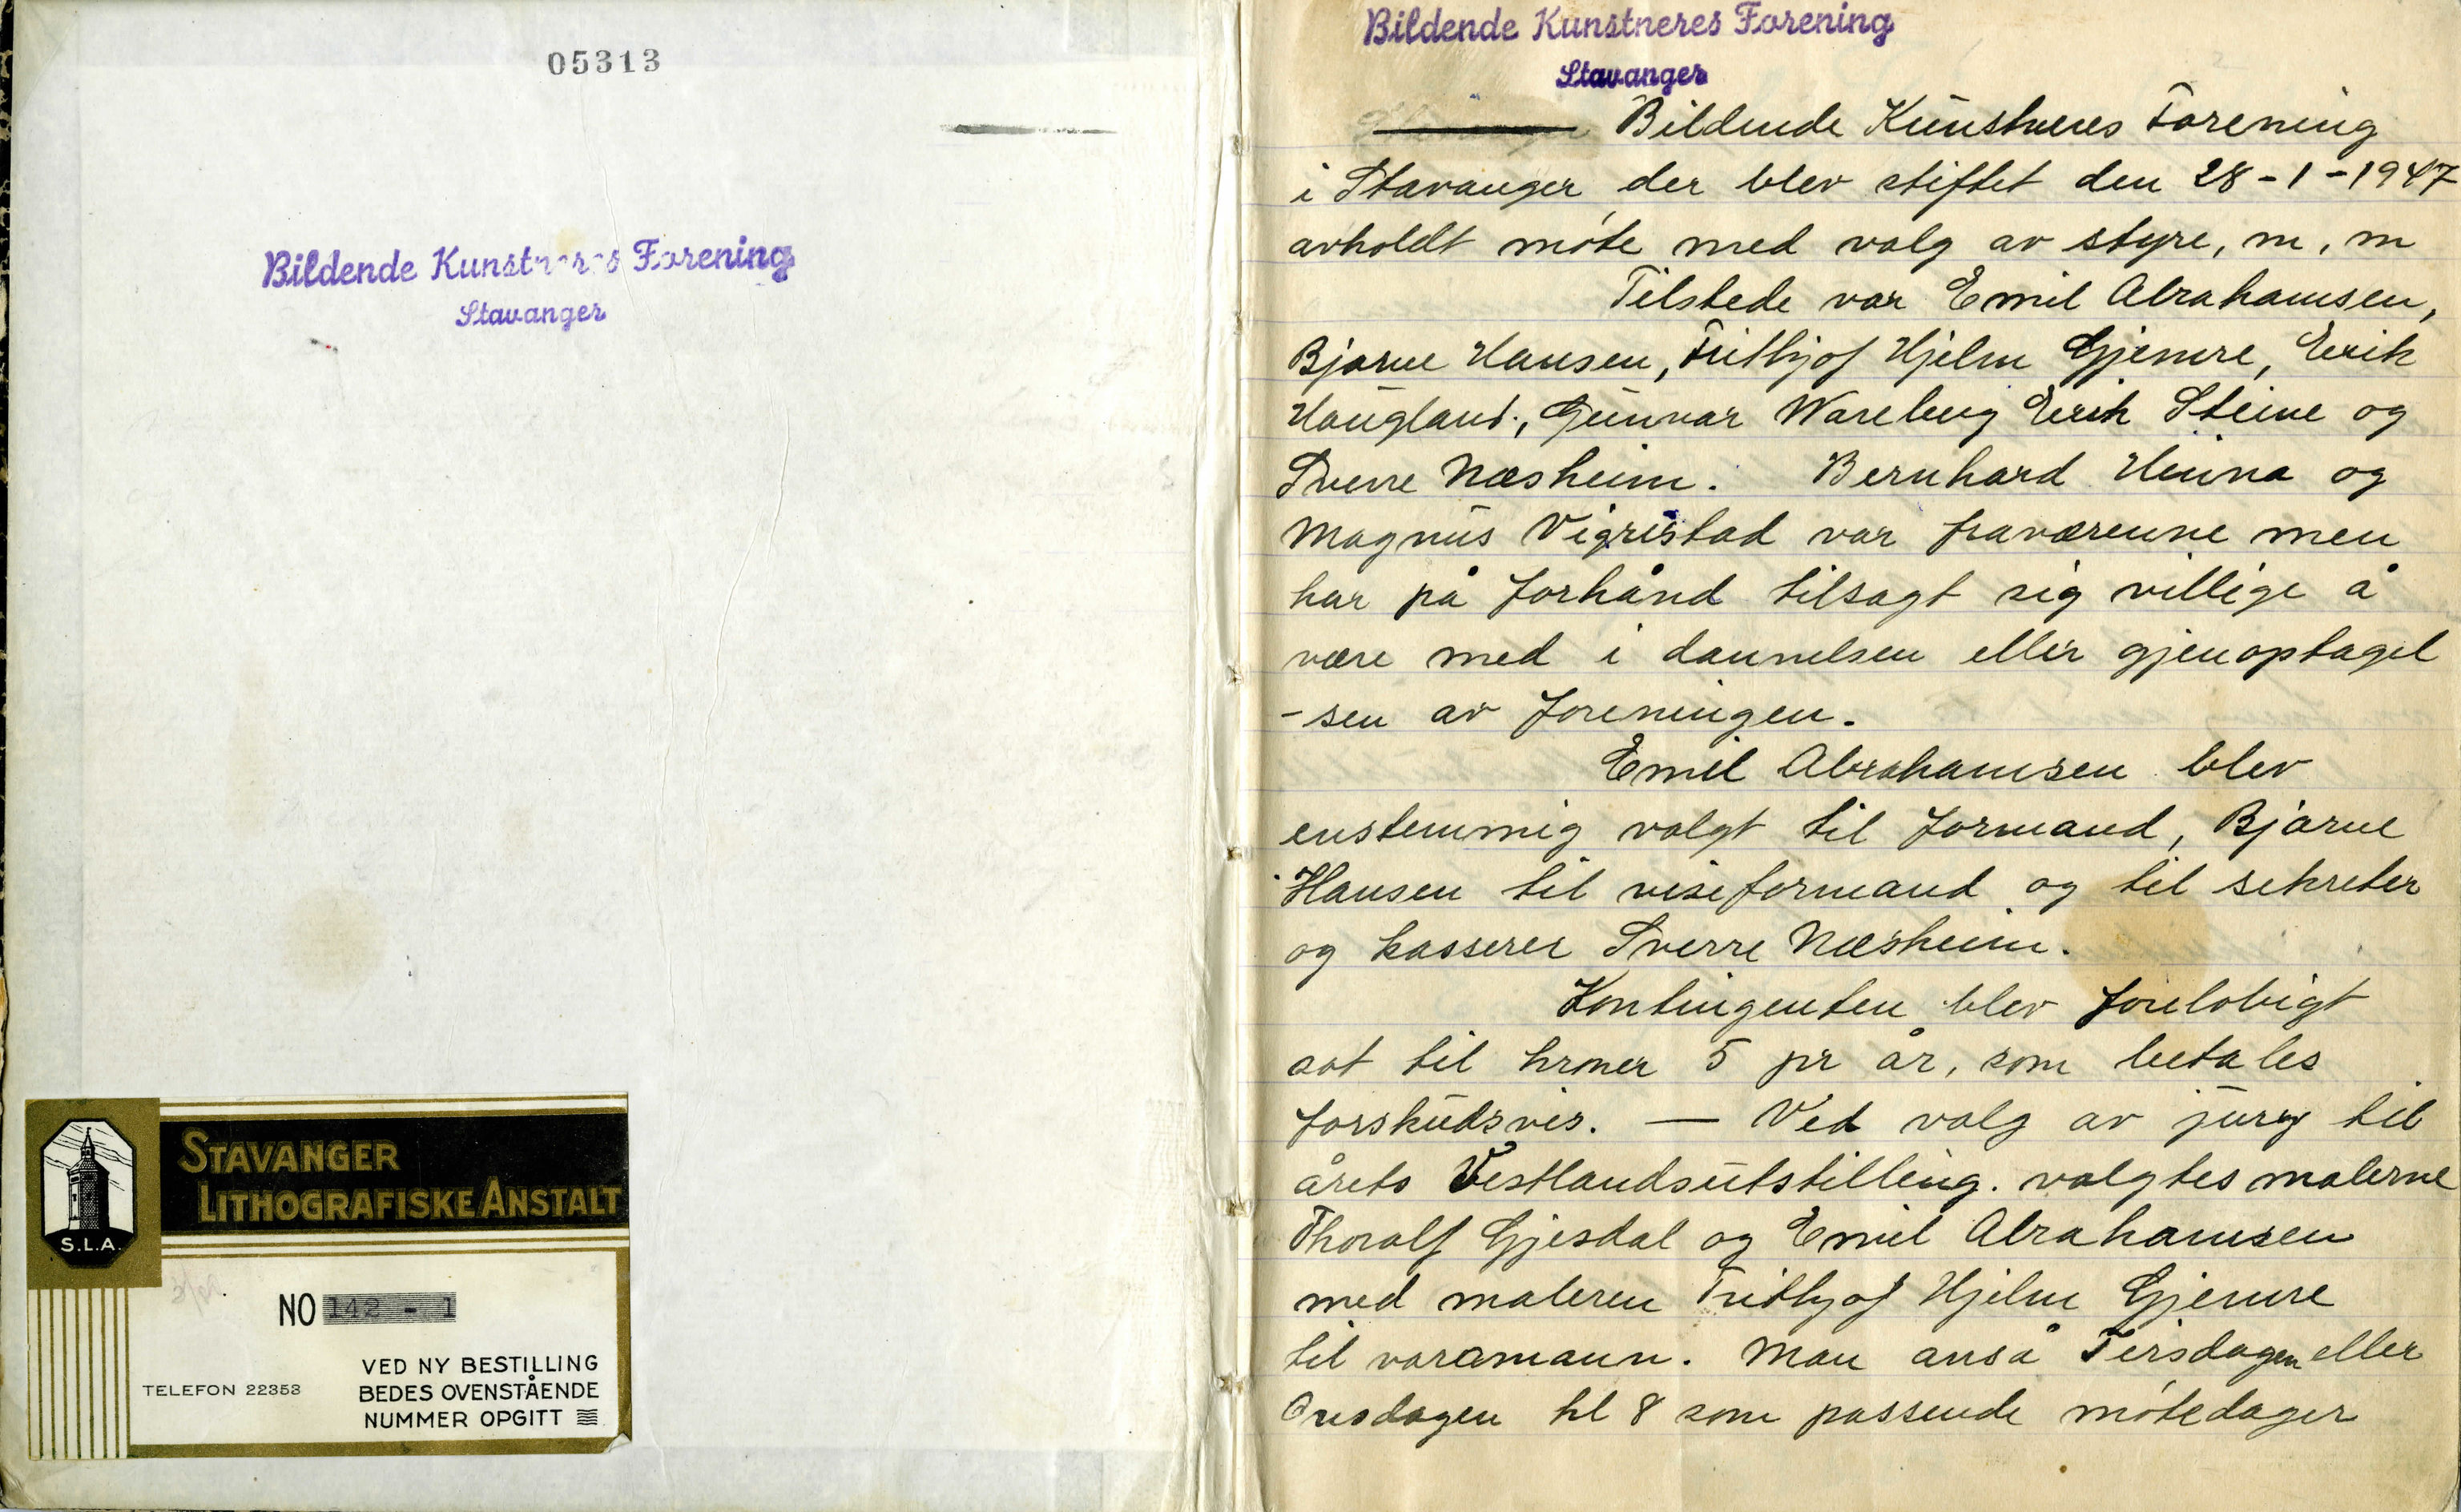 05313
Bildende Kunstneres Forening
Stavanger
STAVANGER
LITHOGRAFISKE ANSTALT
S.L.A.
NO 142 - 1
VED NY BESTILLING
TELEFON 22353 BEDES OVENSTÅENDE
NUMMER OPGITT
Bildende Kunstneres Forening
Stavanger
Bildende Kunstneres Forening
i Stavanger der blev stiftet den 28-1-1947
avholdt møte med valg av styre, m, m
Tilstede var Emil Abrahamsen,
Bjarne Hansen, Frithjof Hjelm Gjemre, Eirik
Haugland, Gunvar Wareberg Eirik Steine og
Sverre Næsheim. Bernhard Hinna og
Magnus Vigrestad var fraværenne men
har på forhånd tilsagt sig villige å
være med i dannelsen eller gjenoptagel
-sen av foreningen.
Emil Abrahamsen blev
enstemmig valgt til formand, Bjarne
Hansen til viseformand og til sekretær
og kasserer Sverre Næsheim.
Kontingenten blev foreløbigt
sat til kroner 5 pr år, som betales
forskudsvis. — Ved valg av jury til
årets Vestlandsutstilling. valgtes malerne
Thoralf Gjesdal og Emil Abrahamsen
med maleren Frithjof Hjelm Gjemre
til varamann. Man anså Tirsdagen eller
Onsdagen kl 8 som passende møtedager